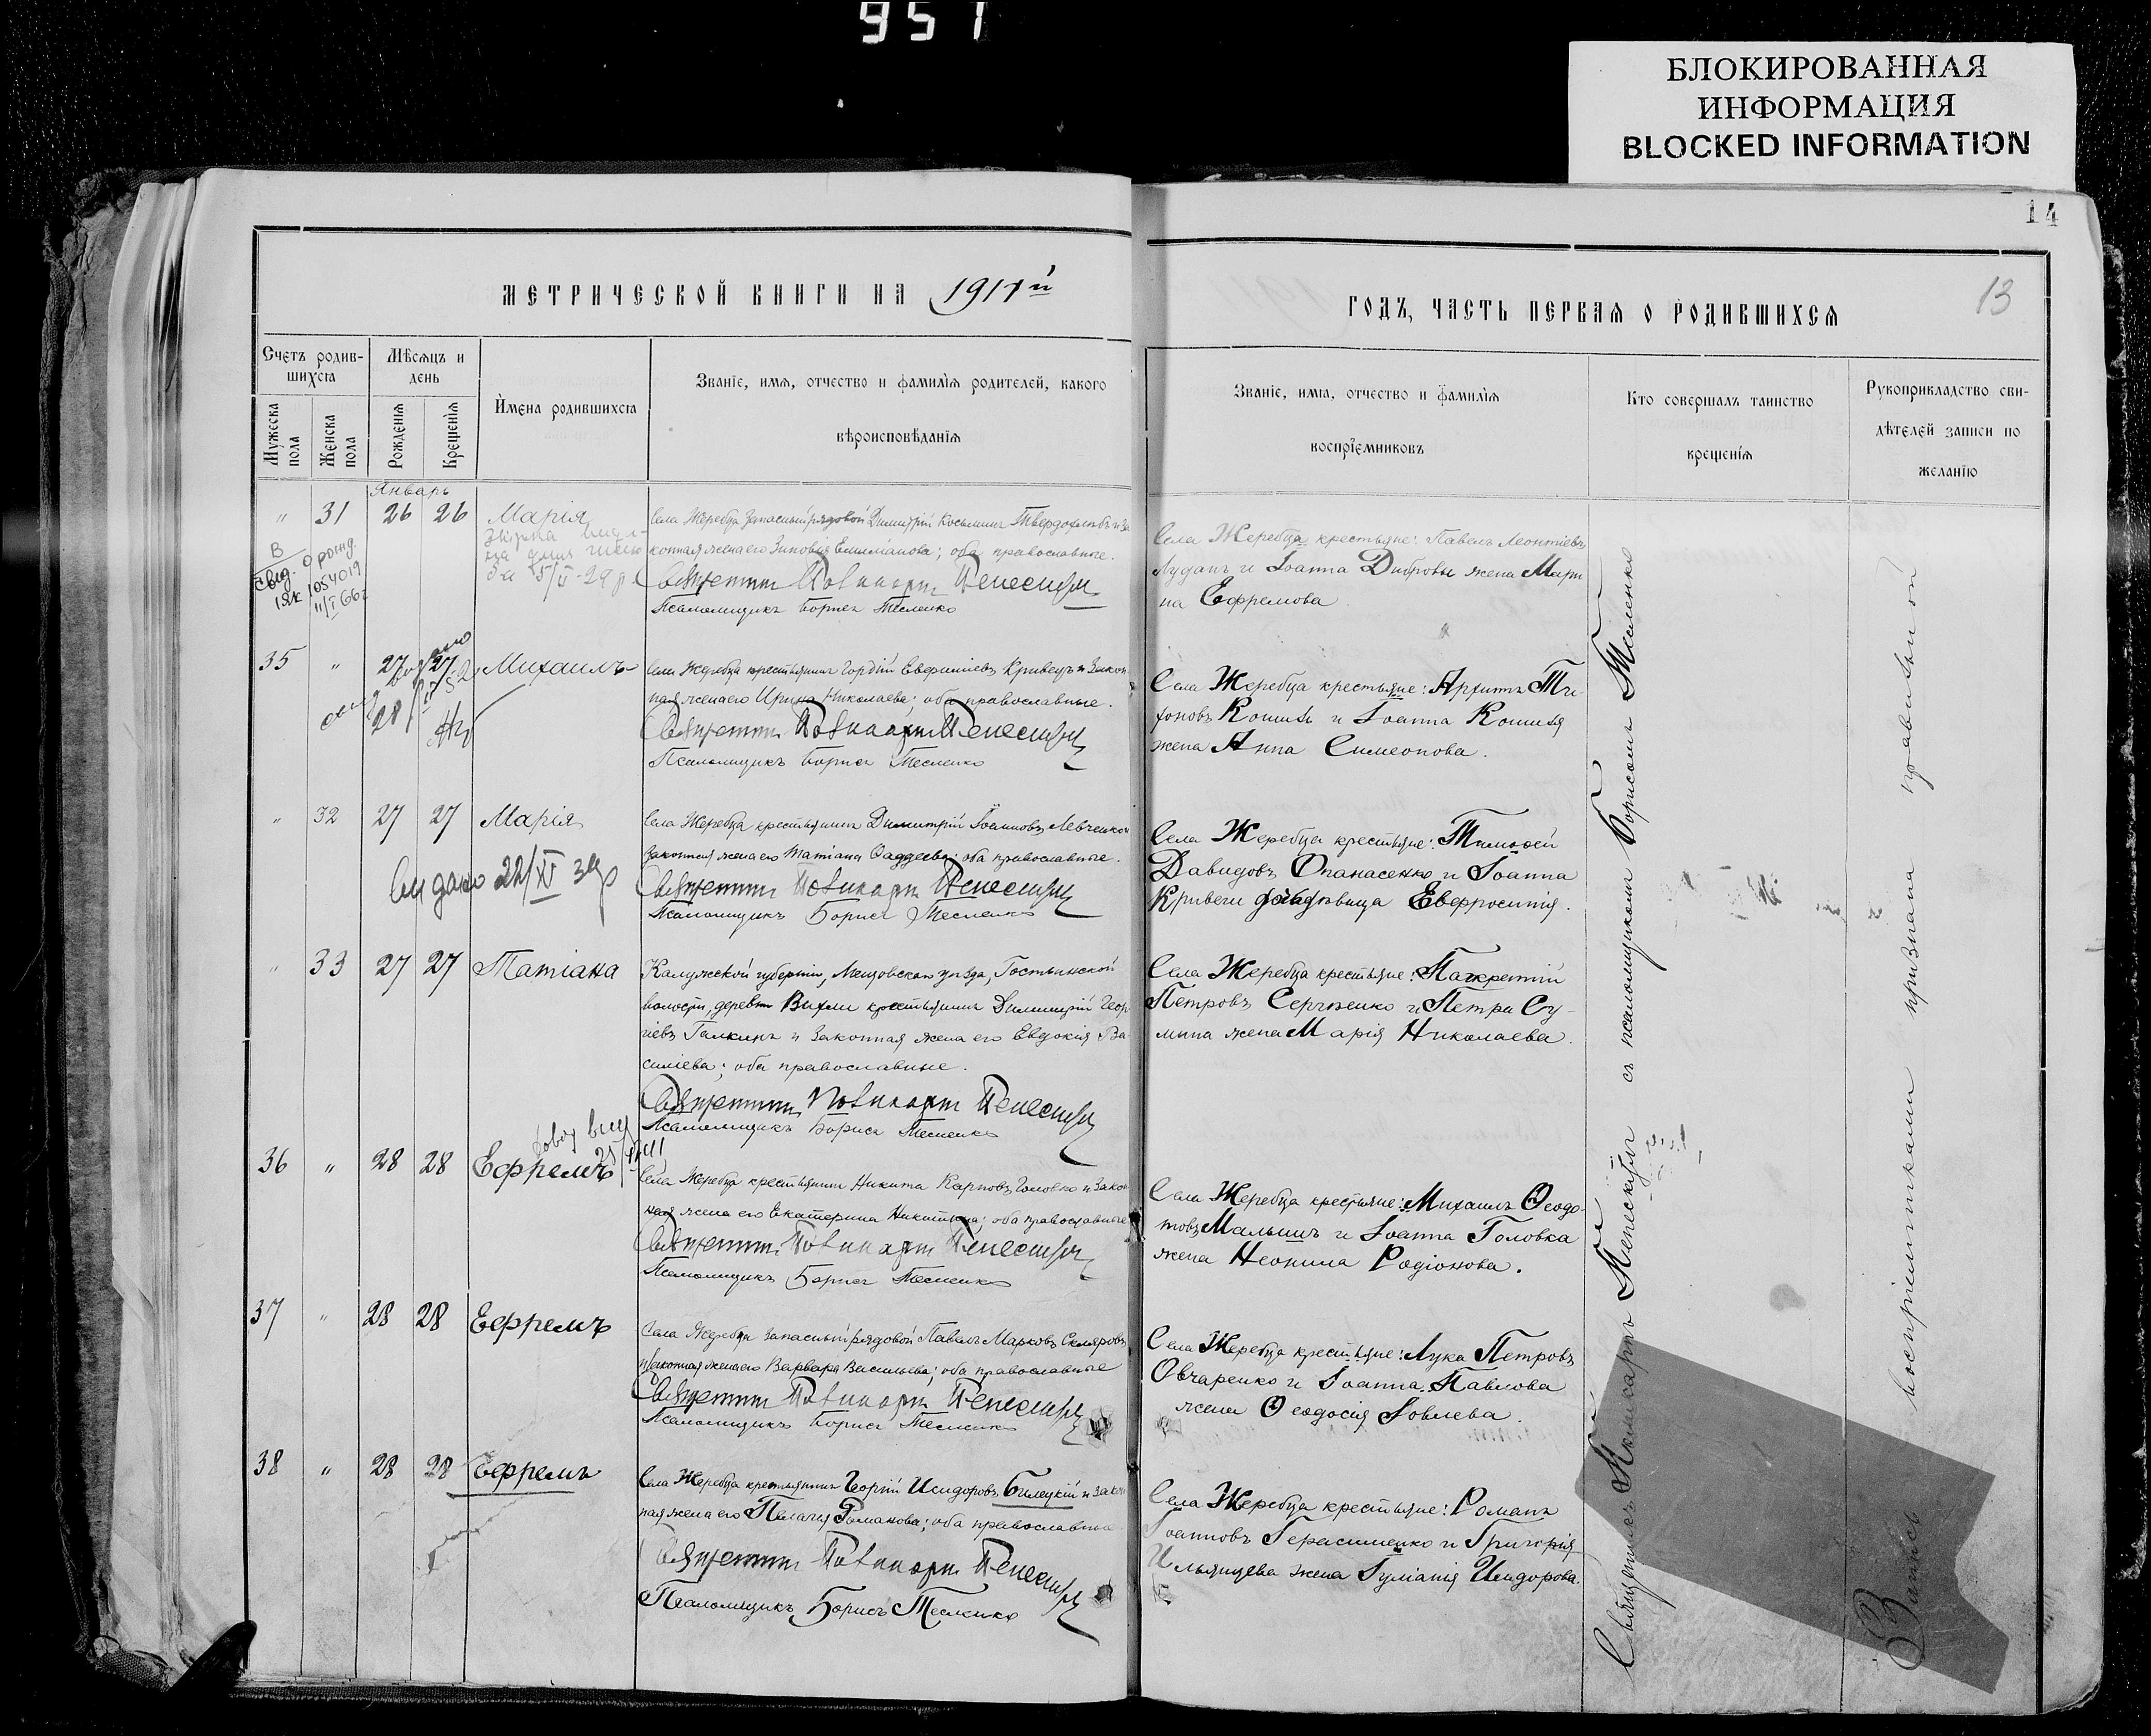 951
БЛОКИРОВАННАЯ
ИНФОРМАЦИЯ
BLOCKED INFORMATION
14
13
МЕТРИЧЕСКОЙ КНИГИ НА 1911й
ГОДЪ, ЧАСТЬ ПЕРВАЯ О РОДИВШИХСЯ
Счетъ родив-
шихся
Мѣсяцъ и
день
Мужеска
пола
Женска
пола
Рожденія
Крещенія
Имена родившихся
Званіе, имя, отчество и фамилія родителей, какого
вѣроисповѣданія
Званіе, имя, отчество и фамилія
воспріемниковъ
Кто совершалъ таинство
крещенія
Рукоприкладство сви-
дѣтелей записи по
желанію
Январь
" 31 26 26 Марія
Села Жеребца запасный рядовой Димитрій Космин Твердохлѣбъ и за
конная жена его Зиновія; оба православные.
Священник Поликарп Пепескул
Псаломщикъ Борис Тесленко
Села Жеребца крестьяне: Павелъ Леонтіевъ
Луданъ и Іоанна Дибровы жена Мари
на Ефремова
В
Свид. о рожд.
1054019
11/I 66г
35 " 27 27 Михаилъ
Села Жеребца крестьянин Гордій Евфиміевъ Кривецъ и закон
ная жена его Ирина Николаева; оба православные.
Священник Поликарп Пепескул
Псаломщикъ Борис Тесленко
Села Жеребца крестьяне: Архипъ Ти-
хоновъ Кошиль и Іоанна Кошиля
жена Анна Симеонова.
" 32 27 27 Марія
22/XI 39р
Села Жеребца крестьянин Димитрій Іоанновъ Левченко и
законная жена его Татіана Фаддеева; оба православные.
Священник Поликарп Пепескул
Псаломщикъ Борис Тесленко
Села Жеребца крестьяне: Тимофей
Давидовъ Опанасенко и Іоанна
Кривеги дочь дѣвица Евфросинія.
" 33 27 27 Татіана
Калужской губерніи, Мещовскаго уѣзда, Гостынской
волости, деревни крестьянин Димитрій Геор
гіевъ Галкинъ и законная жена его Евдокія Ва
силіева; оба православные.
Священник Поликарп Пепескул
Псаломщикъ Борис Тесленко
Села Жеребца крестьяне: Панкратій
Петровъ Сергѣенко и Петра Су-
мина жена Марія Николаева.
36 " 28 28 Ефремъ
Села Жеребца крестьянин Никита Карповъ Головко и закон
ная жена его Екатерина Никитина; оба православные
Священник Поликарп Пепескул
Псаломщикъ Борис Тесленко
Села Жеребца крестьяне: Михаилъ Феодо-
товъ Малышъ и Іоанна Головка
жена Неонила Родіонова.
37 " 28 28 Ефремъ
Села Жеребца запасный рядовой Павелъ Марковъ Скляровъ
и законная жена его Варвара Васильева; оба православные
Священник Поликарп Пепескул
Псаломщикъ Борис Тесленко
Села Жеребца крестьяне: Лука Петровъ
Овчаренко и Іоанна Павлова
жена Феодосія Іовлева.
38 " 28 28 Ефремъ
Села Жеребца крестьянин Георгій Исидоровъ Билецкій и закон
ная жена его Пелагія Романова; оба православные
Священник Поликарп Пепескул
Псаломщикъ Борисъ Тесленко
Села Жеребца крестьяне: Романъ
Іоанновъ Герасименко и Григорія
Ильяшева жена Іуліанія Исидорова.
Священникъ Поликарпъ Пепескулъ съ псаломщикомъ Борисомъ Тесленко
Запись воспріемниками признана правильной